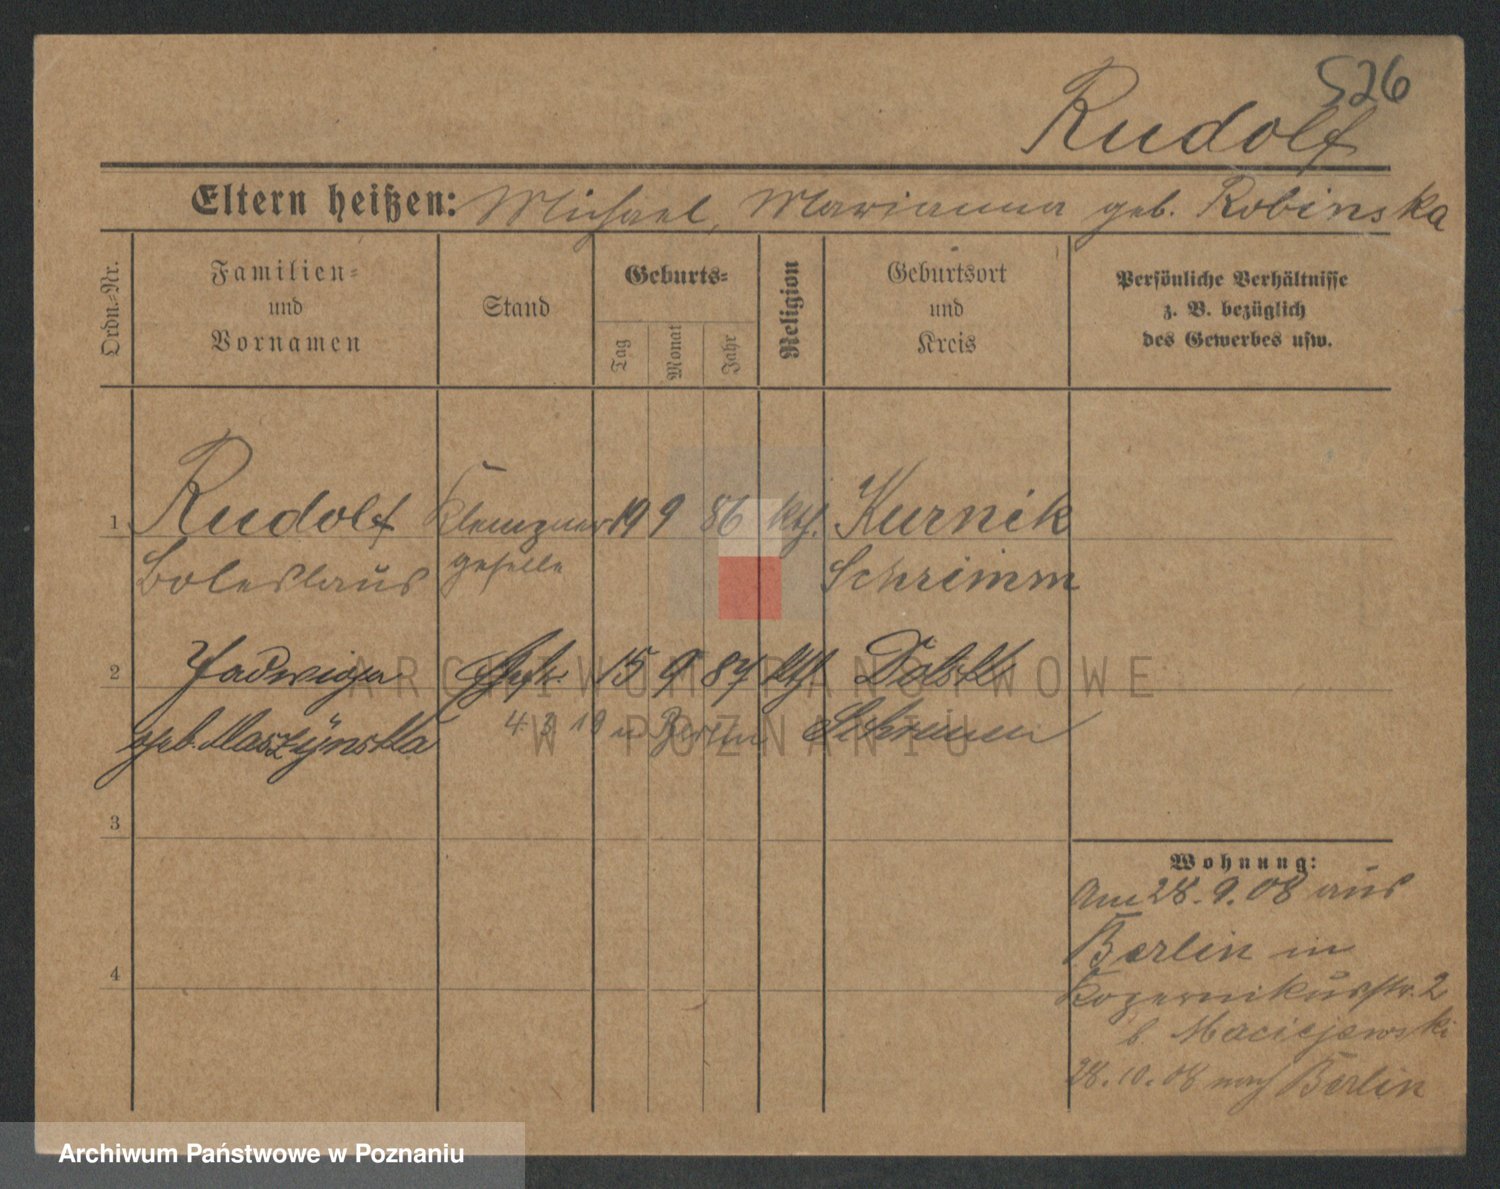 526
Rudolf
Eltern heißen: Michael, Marianna geb. Robinska
Ordn.-Nr.
Familien-
und
Vornamen
Stand
Geburts-
Tag
Monat
Jahr
Religion
Geburtsort
und
Kreis
Persönliche Verhältnisse
z. B. bezüglich
des Gewerbes usw.
1 Rudolf Klempner 19 9 86 kth. Kurnik
Boleslaus geselle Schrimm
2 Jadwiga Ehefr. 15 9 87 kth. Dolsk
geb. Maszÿnska 4 3 10 in Berlin Schrimm
3
4
Wohnung:
Am 28.9.08 aus
Berlin in
Kopernikusstr. 2
b Maciejewski
28.10.08 nach Berlin
ARCHIWUM PAŃSTWOWE
W POZNANIU
Archiwum Państwowe w Poznaniu